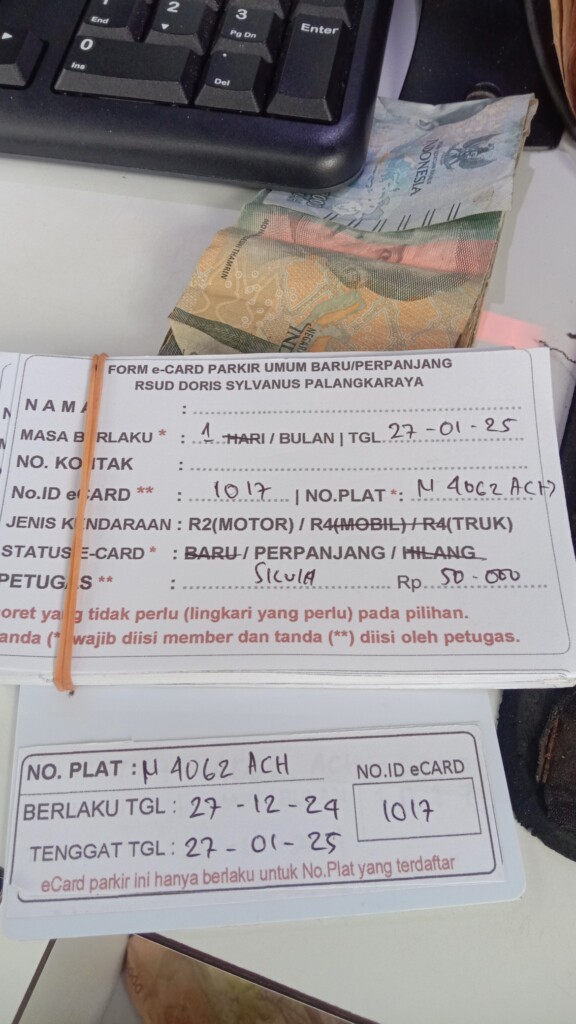 1
End
2
3
Pg Dn
Enter
0
Ins
.
Del
INDONESIA
FORM e-CARD PARKIR UMUM BARU/PERPANJANG
RSUD DORIS SYLVANUS PALANGKARAYA
NAMA :
MASA BERLAKU * : 1 HARI / BULAN | TGL 27-01-25
NO. KONTAK :
No.ID eCARD ** : 1017 | NO.PLAT *: N 4062 ACH
JENIS KENDARAAN : R2(MOTOR) / R4(MOBIL) / R4(TRUK)
STATUS E-CARD * : BARU / PERPANJANG / HILANG
PETUGAS ** : Rp 50-000
coret yang tidak perlu (lingkari yang perlu) pada pilihan.
tanda (* wajib diisi member dan tanda (**) diisi oleh petugas.
NO. PLAT : N 4062 ACH
NO.ID eCARD
BERLAKU TGL : 27-12-24
1017
TENGGAT TGL : 27-01-25
eCard parkir ini hanya berlaku untuk No.Plat yang terdaftar